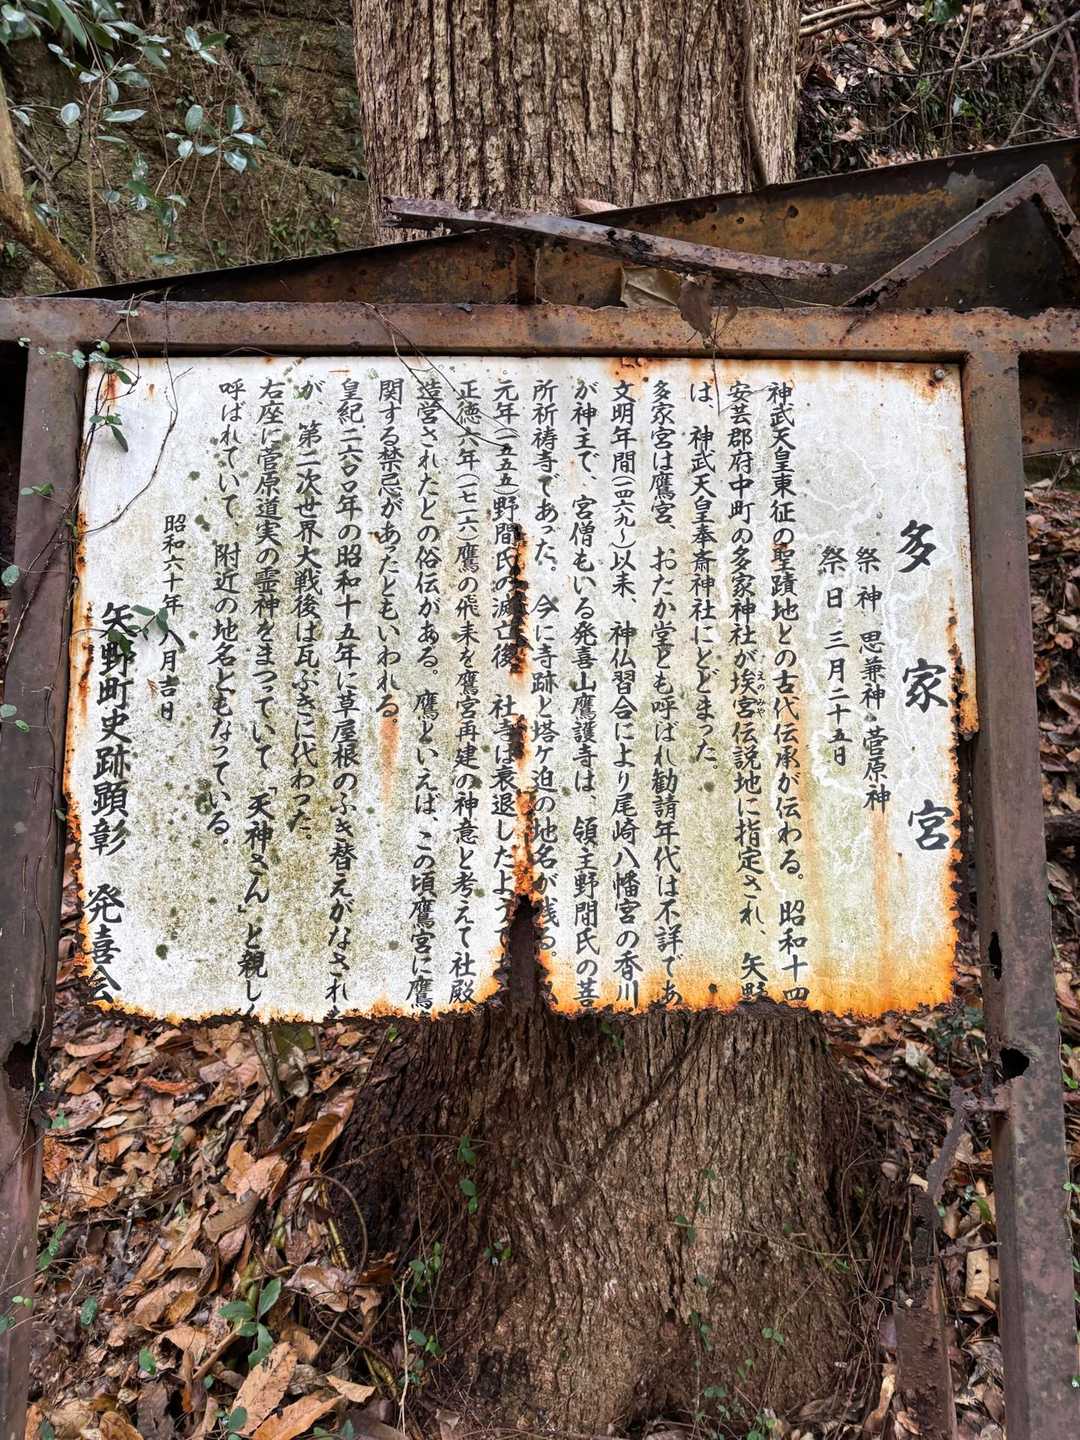 多家宮
祭神 思兼神・菅原神
祭日 三月二十五日
神武天皇東征の聖蹟地との古代伝承が伝わる。昭和十四
安芸郡府中町の多家神社が埃宮伝説地に指定され、矢野
えのみや
は、神武天皇奉斎神社にとどまった。
多家宮は鷹宮、おたか堂とも呼ばれ勧請年代は不詳であ
文明年間(一四六九〜)以来、神仏習合により尾崎八幡宮の香川
が神主で、宮僧もいる発喜山鷹護寺は、領主野間氏の菩
所祈祷寺であった。今に寺跡と塔ケ迫の地名が残る。
元年(一五五五)野間氏の滅亡後、社寺は衰退したようで
正徳六年(一七一六)鷹の飛来を鷹宮再建の神意と考えて社殿
造営されたとの俗伝がある。鷹といえば、この頃鷹宮に鷹
関する禁忌があったともいわれる。
皇紀二六〇〇年の昭和十五年に草屋根のふき替えがなされ
が、第二次世界大戦後は瓦ぶきに代わった。
右座に菅原道実の霊神をまつっていて「天神さん」と親し
呼ばれていて、附近の地名ともなっている。
昭和六十年八月吉日
矢野町史跡顕彰 発喜会